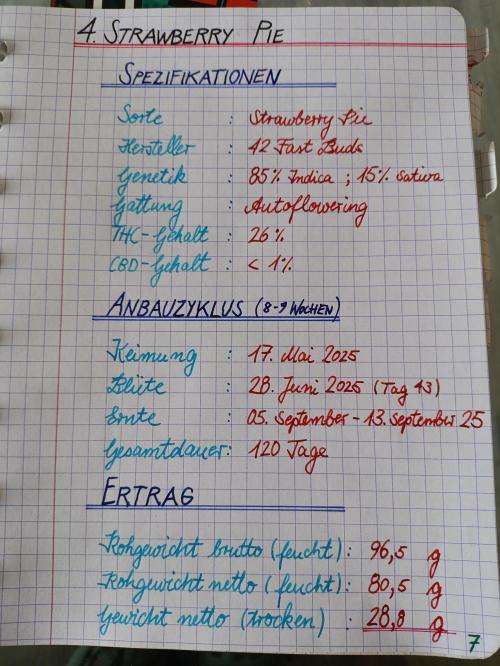 4. STRAWBERRY PIE
SPEZIFIKATIONEN
Sorte : Strawberry Pie
Hersteller : 42 Fast Buds
Genetik : 85% Indica ; 15% Sativa
Gattung : Autoflowering
THC-Gehalt : 26%
CBD-Gehalt : < 1%
ANBAUZYKLUS (8-9 WOCHEN)
Keimung : 17. Mai 2025
Blüte : 28. Juni 2025 (Tag 43)
Ernte : 05. September - 13. September 25
Gesamtdauer: 120 Tage
ERTRAG
Rohgewicht brutto (feucht): 96,5 g
Rohgewicht netto (feucht): 80,5 g
Gewicht netto (trocken) : 28,8 g
7